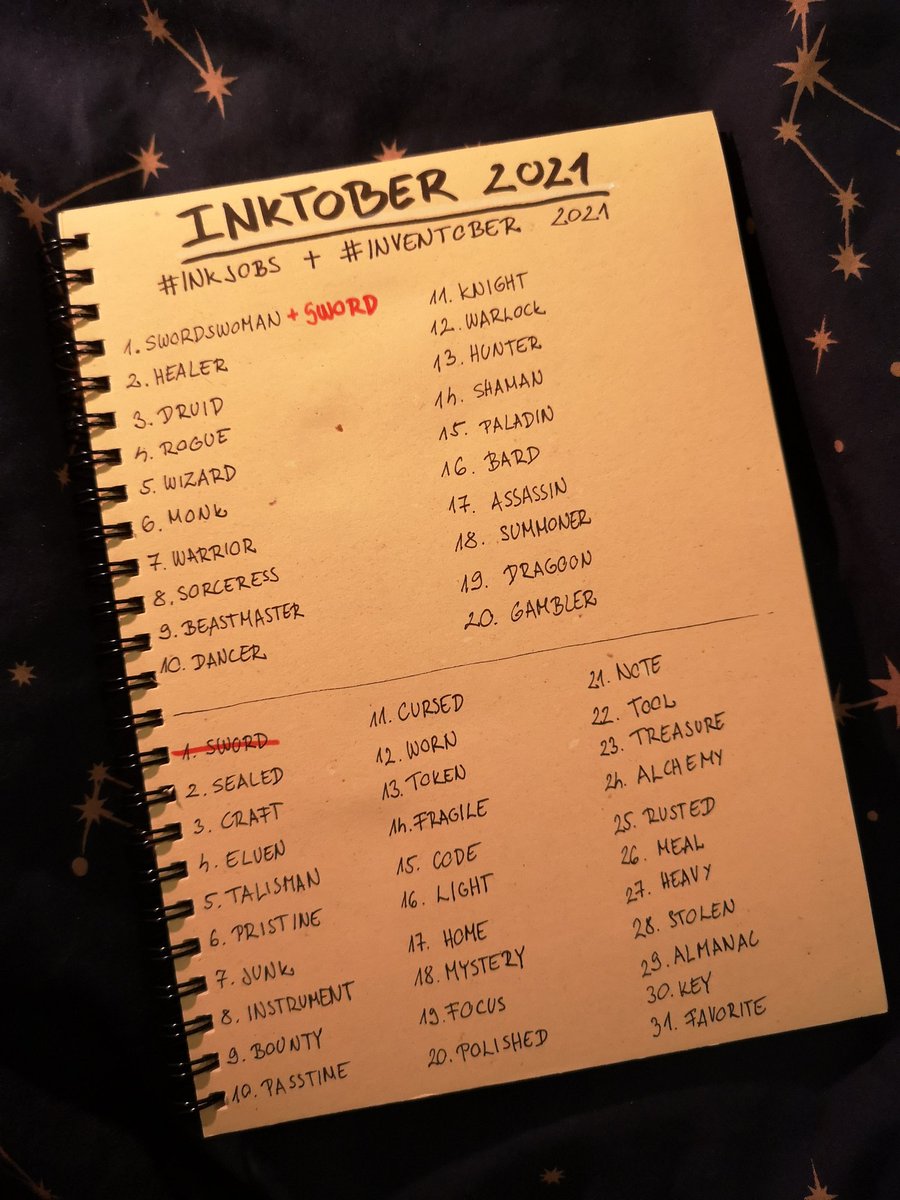 INKTOBER 2021
#INKJOBS + #INVENTOBER 2021
1. SWORDSWOMAN + SWORD
2. HEALER
3. DRUID
4. ROGUE
5. WIZARD
6. MONK
7. WARRIOR
8. SORCERESS
9. BEASTMASTER
10. DANCER
11. KNIGHT
12. WARLOCK
13. HUNTER
14. SHAMAN
15. PALADIN
16. BARD
17. ASSASSIN
18. SUMMONER
19. DRAGOON
20. GAMBLER
1. SWORD
2. SEALED
3. CRAFT
4. ELVEN
5. TALISMAN
6. PRISTINE
7. JUNK
8. INSTRUMENT
9. BOUNTY
10. PASSTIME
11. CURSED
12. WORN
13. TOKEN
14. FRAGILE
15. CODE
16. LIGHT
17. HOME
18. MYSTERY
19. FOCUS
20. POLISHED
21. NOTE
22. TOOL
23. TREASURE
24. ALCHEMY
25. RUSTED
26. MEAL
27. HEAVY
28. STOLEN
29. ALMANAC
30. KEY
31. FAVORITE